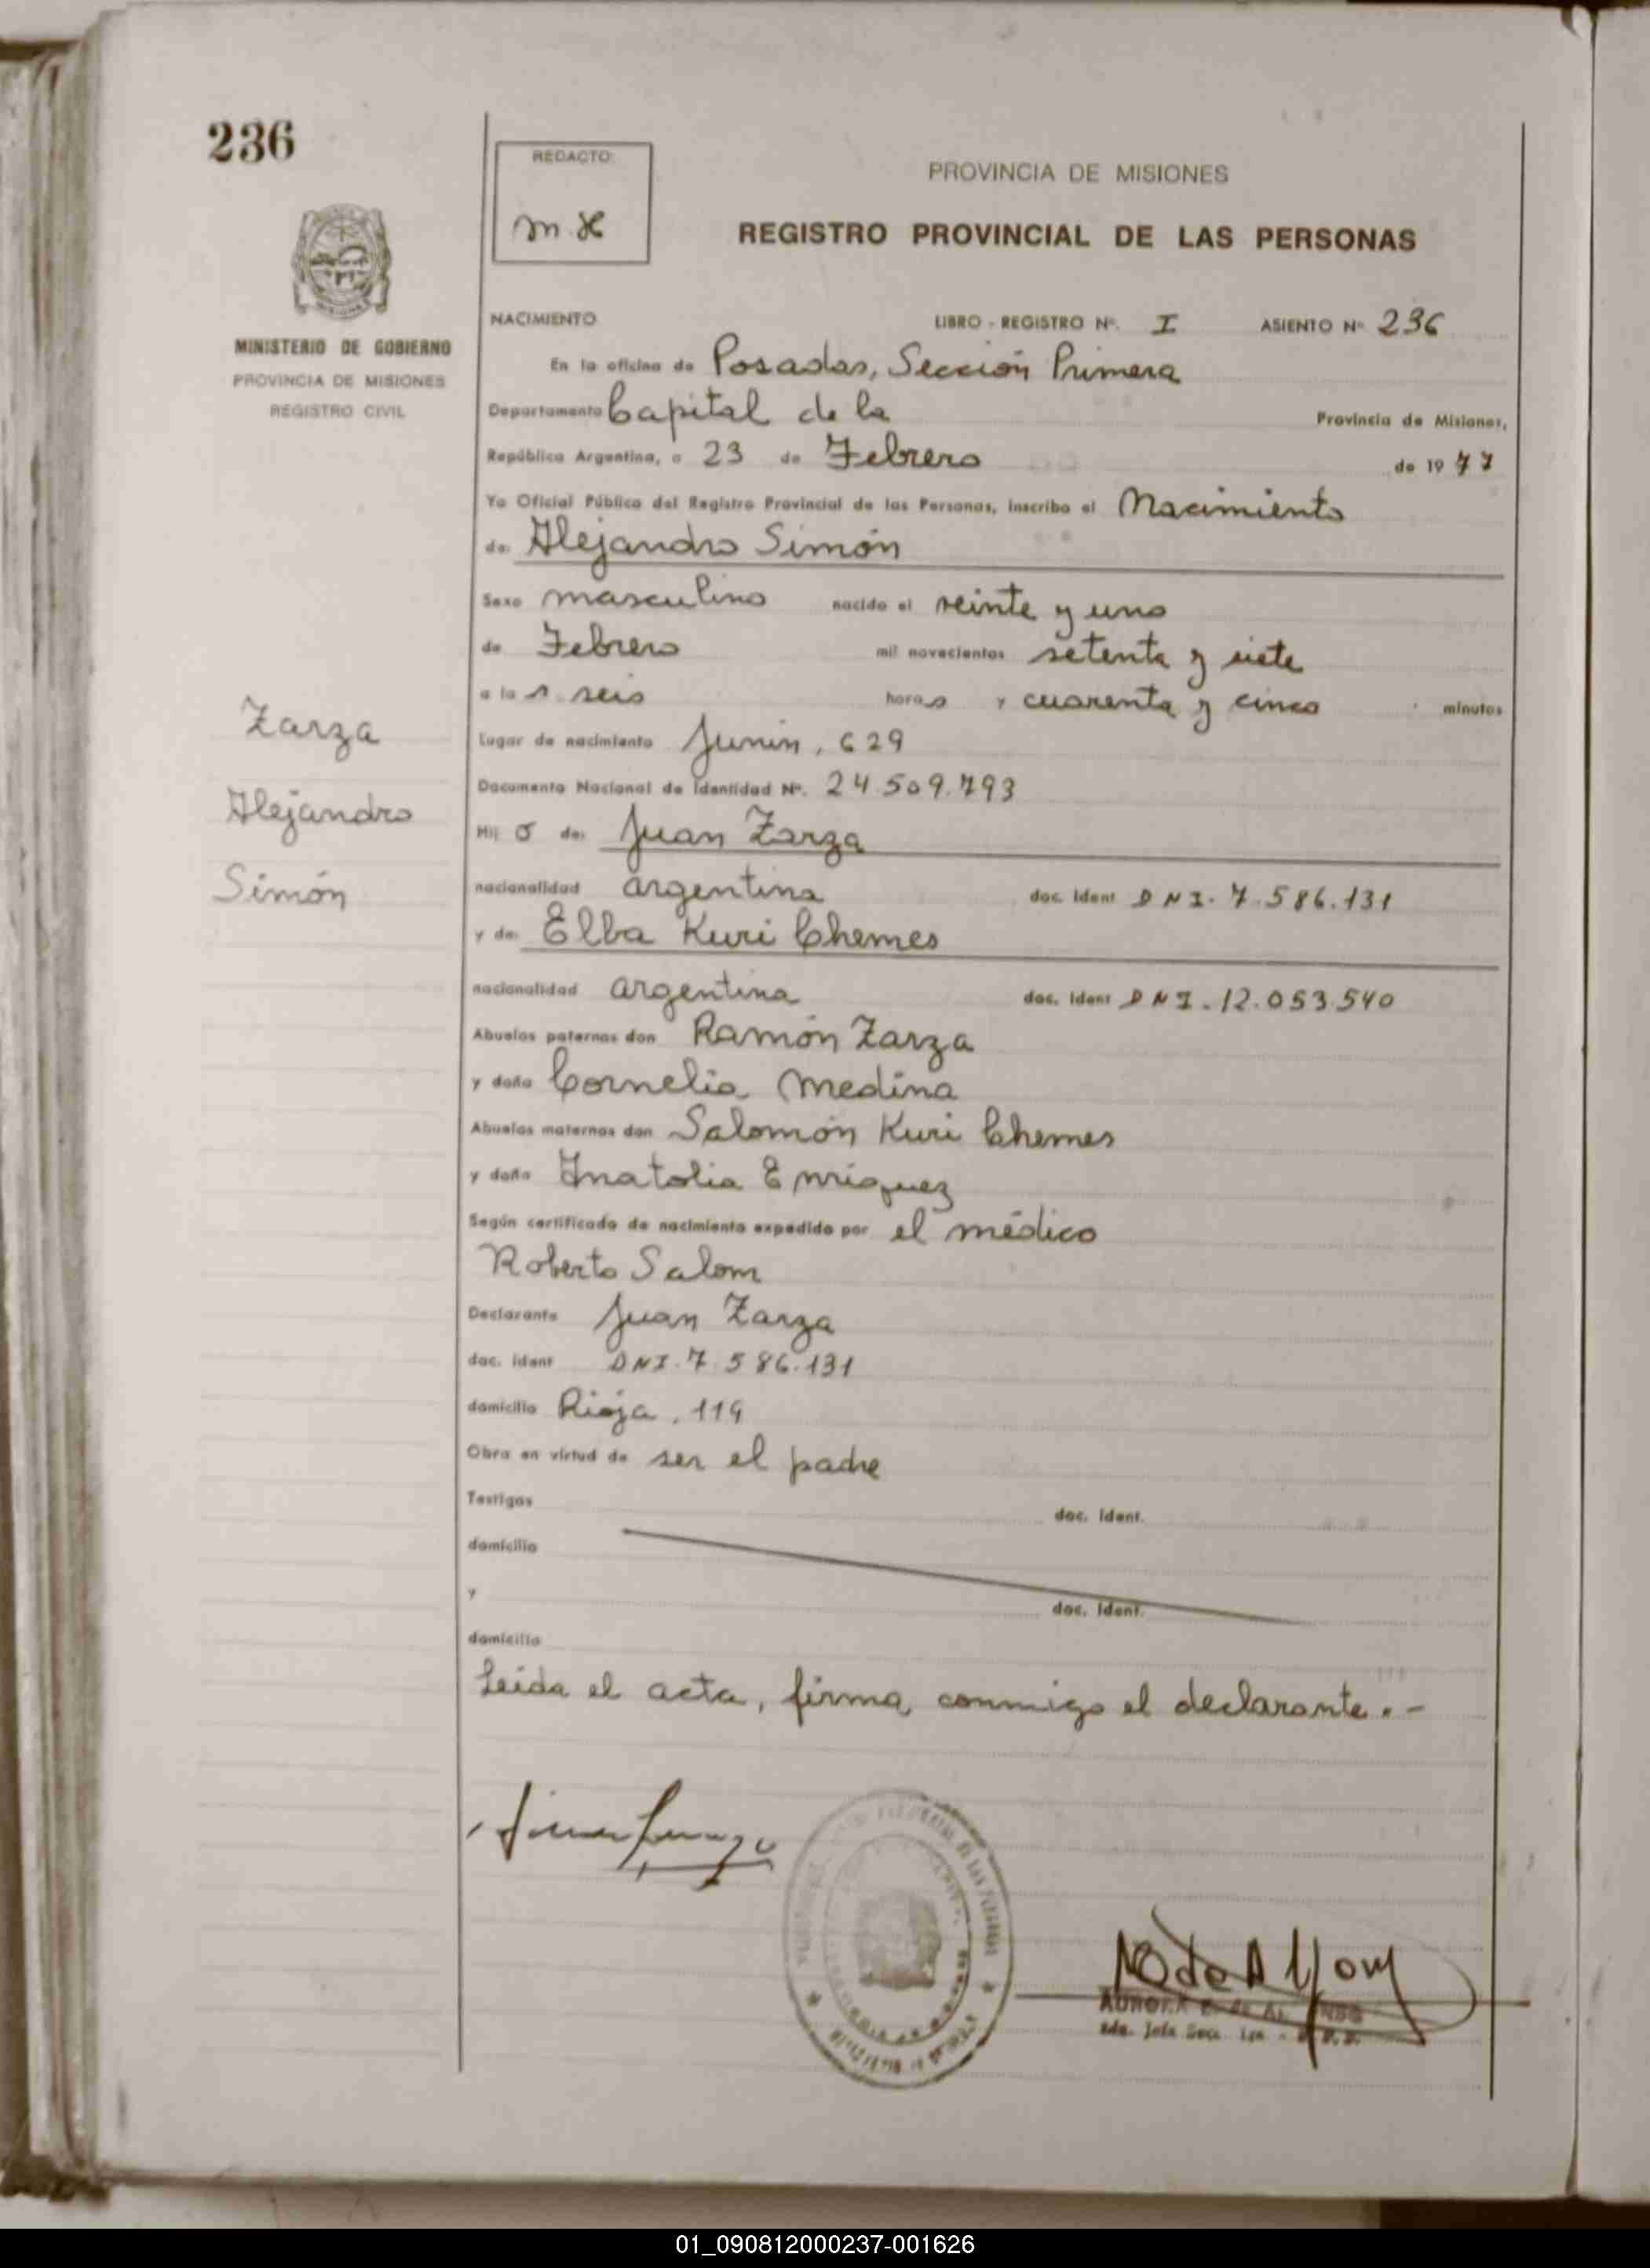 236
REDACTO:
PROVINCIA DE MISIONES
REGISTRO PROVINCIAL DE LAS PERSONAS
MISIONES
MINISTERIO DE GOBIERNO
PROVINCIA DE MISIONES
REGISTRO CIVIL
NACIMIENTO LIBRO - REGISTRO Nº. I ASIENTO Nº 236
En la oficina de Posadas, Sección Primera
Departamento Capital de la Provincia de Misiones,
República Argentina, a 23 de Febrero de 1977
Yo Oficial Público del Registro Provincial de las Personas, inscribo el Nacimiento
de: Alejandro Simón
Sexo masculino nacido el veinte y uno
de Febrero mil novecientos setenta y siete
a las seis horas y cuarenta y cinco minutos
Lugar de nacimiento Junin, 629
Documento Nacional de Identidad Nº. 24.509.793
Hijo de: Juan Zarza
nacionalidad argentina doc. ident DNI. 7.586.131
y de: Elba Kuri Chemes
nacionalidad argentina doc. ident DNI. 12.053.540
Abuelos paternos don Ramón Zarza
y doña Cornelia Medina
Abuelos maternos don Salomón Kuri Chemes
y doña Enriquez
Según certificado de nacimiento expedido por el médico
Roberto Salom
Declarante Juan Zarza
doc. ident DNI. 7.586.131
domicilio Rioja, 119
Obra en virtud de ser el padre
Testigos doc. ident.
domicilio
y doc. ident.
domicilio
Leida el acta, firma, conmigo el declarante.-
Zarza
Alejandro
Simón
AURORA
01_090812000237-001626